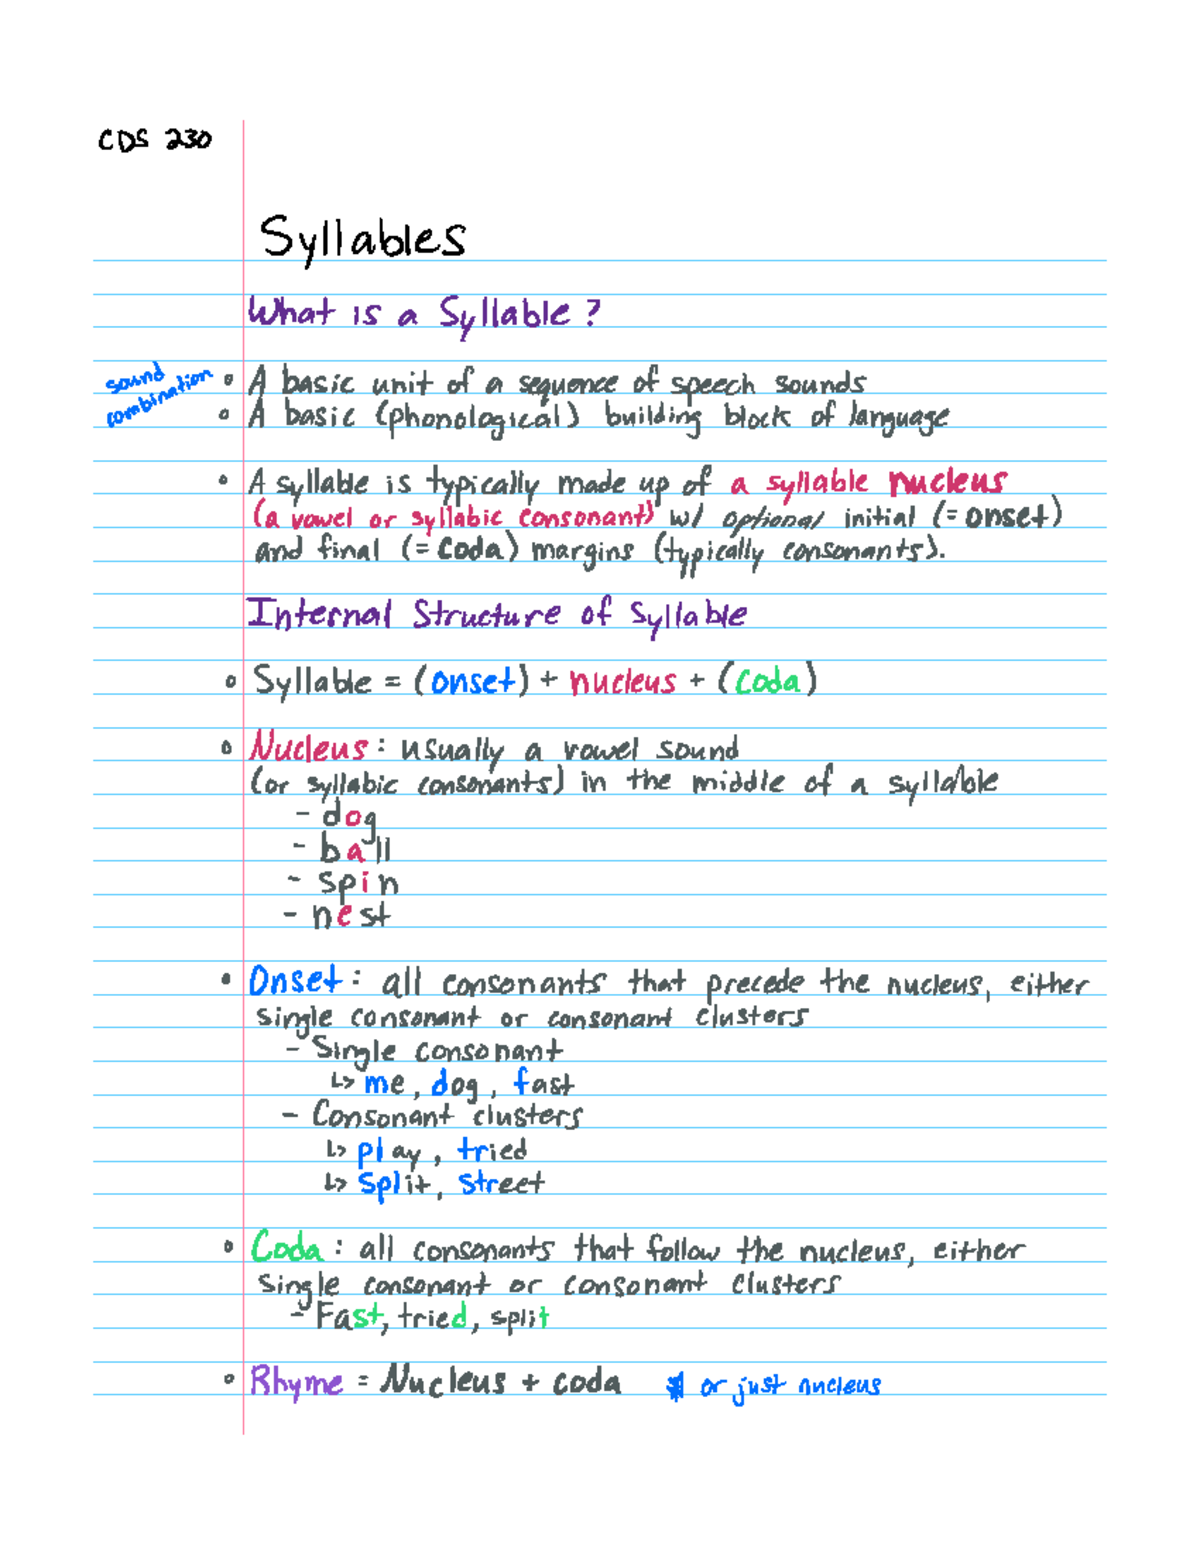 CDS 230
Syllables
What is a Syllable?
sound
combination
◦ A basic unit of a sequence of speech sounds
◦ A basic (phonological) building block of language
◦ A syllable is typically made up of a syllable nucleus
(a vowel or syllabic consonant) w/ optional initial (= onset)
and final (= coda) margins (typically consonants).
Internal Structure of Syllable
◦ Syllable = (onset) + nucleus + (coda)
◦ Nucleus: usually a vowel sound
(or syllabic consonants) in the middle of a syllable
- dog
- ball
- spin
- nest
◦ Onset: all consonants that precede the nucleus, either
single consonant or consonant clusters
- Single consonant
↳ me, dog, fast
- Consonant clusters
↳ play, tried
↳ split, street
◦ Coda: all consonants that follow the nucleus, either
single consonant or consonant clusters
- Fast, tried, split
◦ Rhyme = Nucleus + coda * or just nucleus